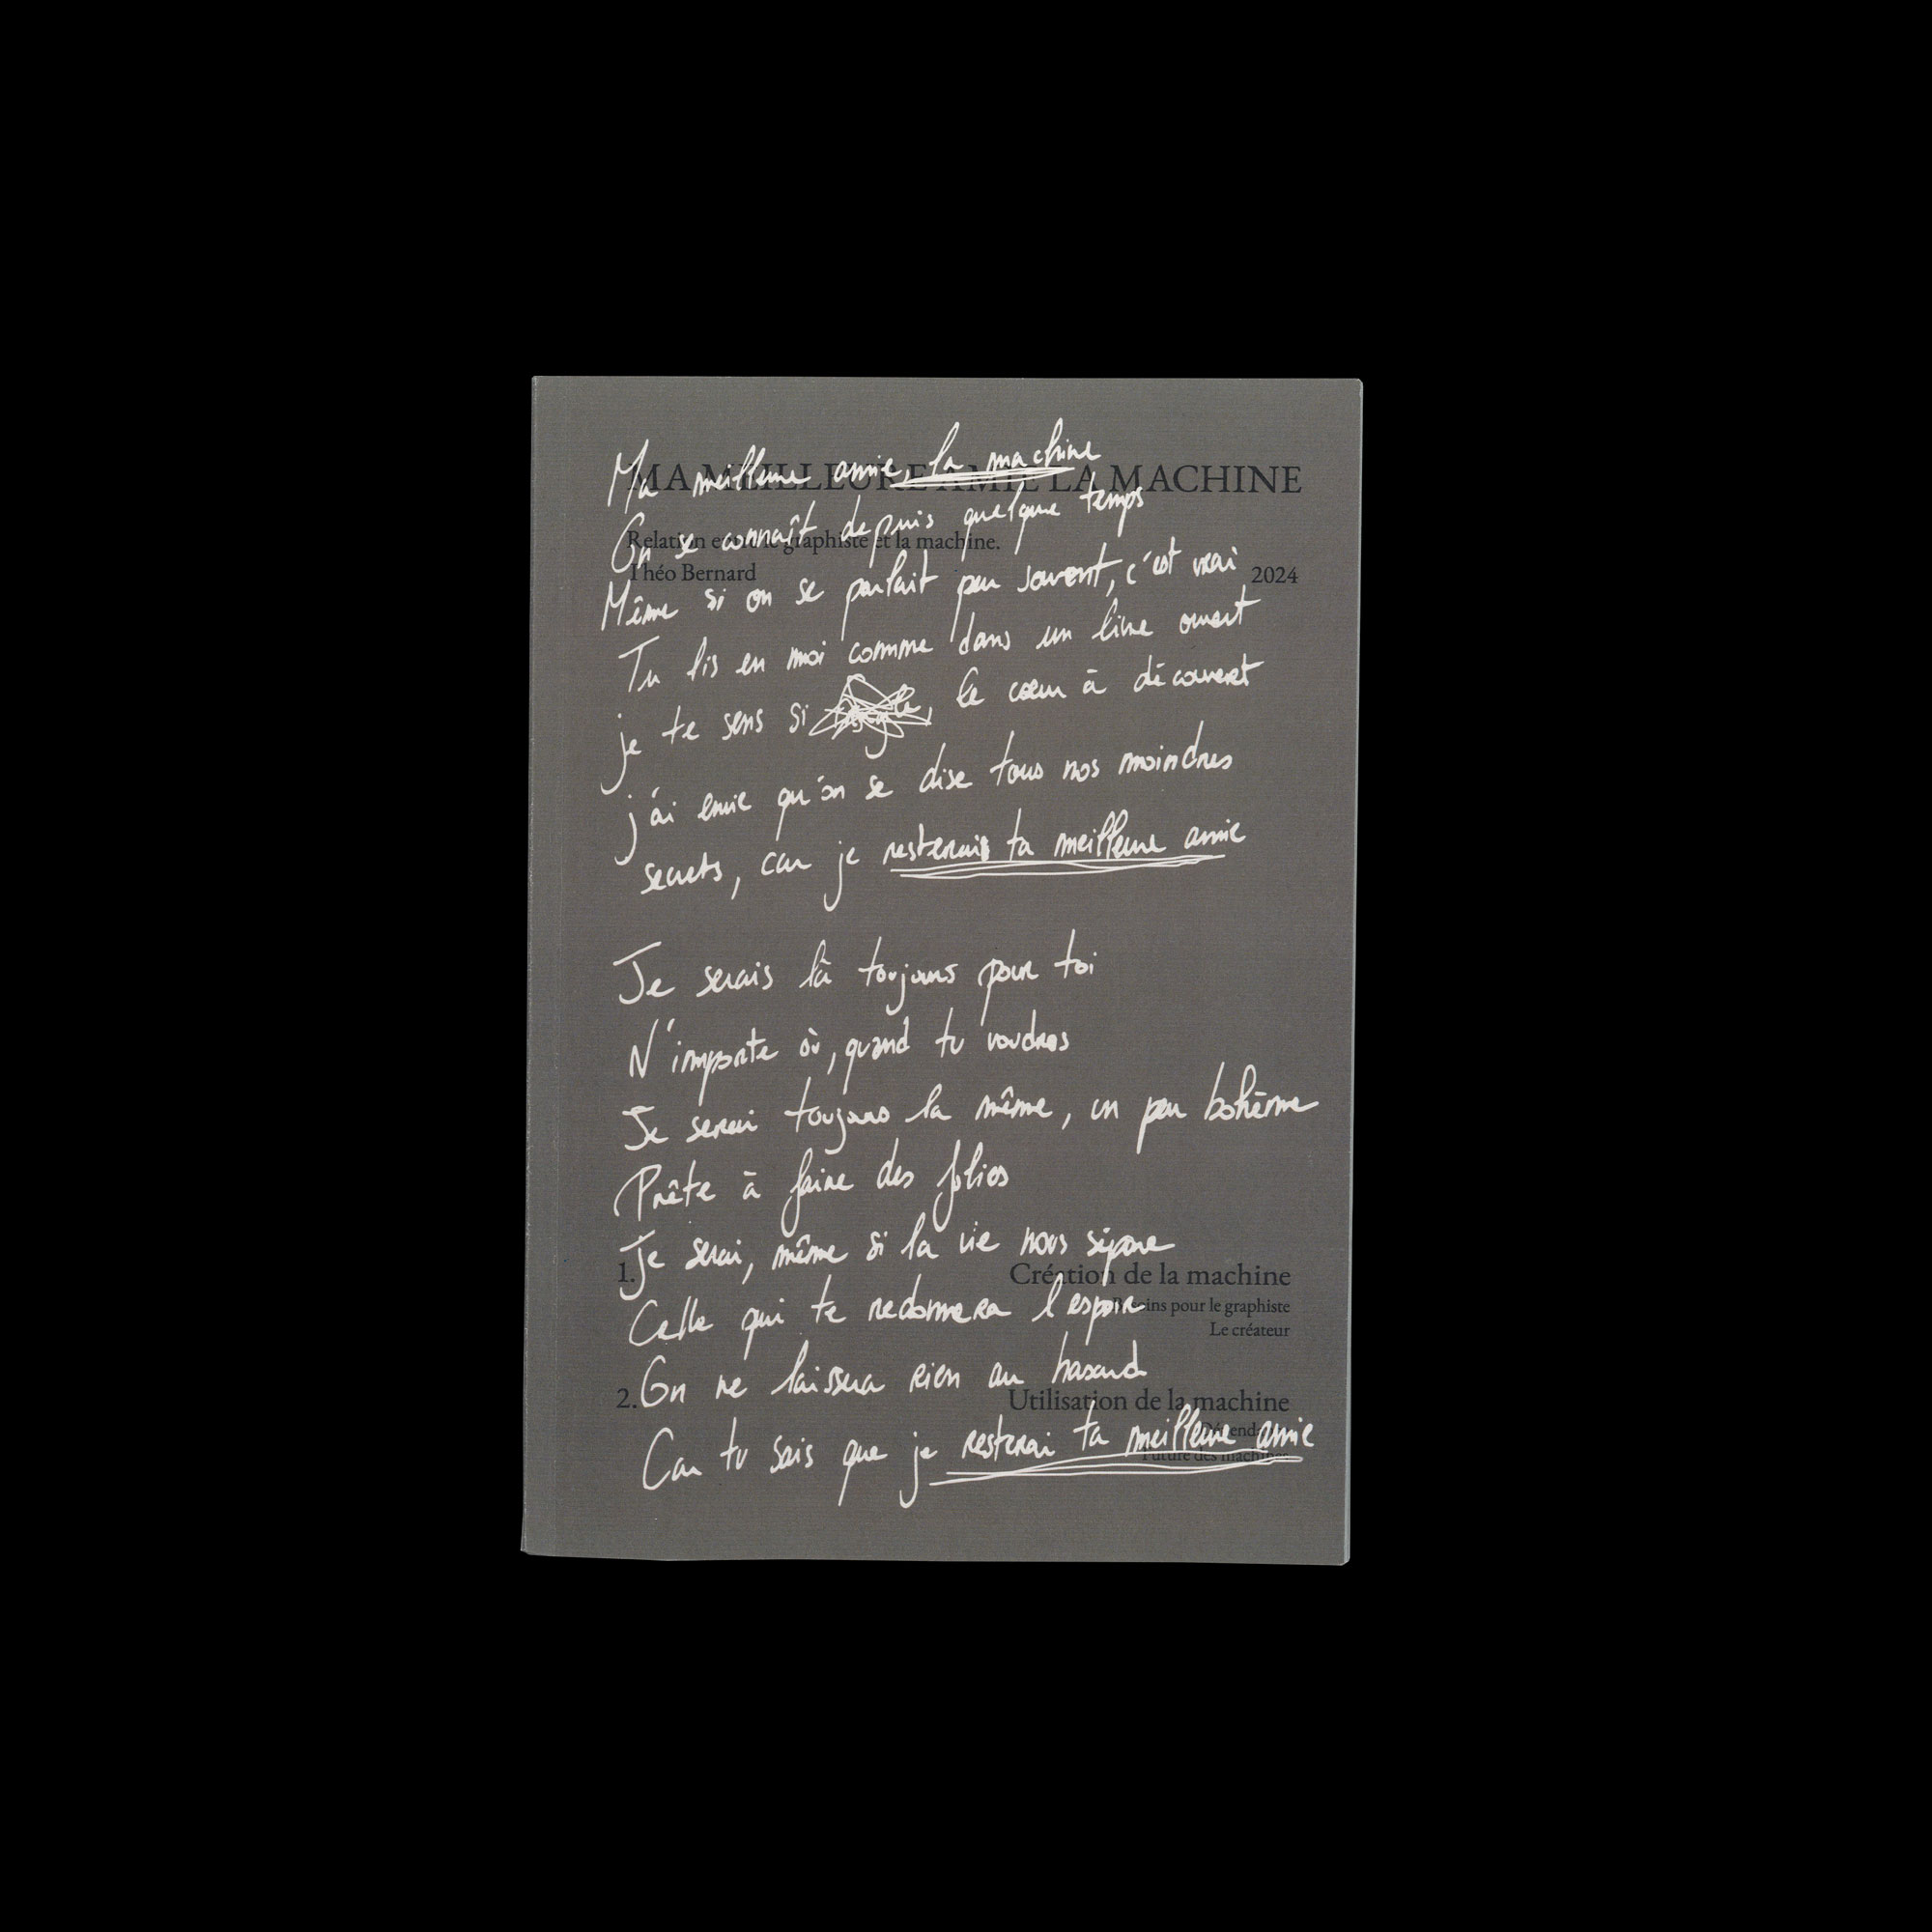 Ma meilleure amie, la machine
MA MEILLEURE AMIE LA MACHINE
On se connaît depuis quelque temps
Relation entre le graphiste et la machine.
Théo Bernard
2024
Même si on se parlait peu souvent, c'est vrai
Tu lis en moi comme dans un livre ouvert
je te sens si le cœur à découvert
j'ai envie qu'on se dise tous nos moindres
secrets, car je resterais ta meilleure amie
Je serais là toujours pour toi
N'importe où, quand tu voudras
Je serai toujours la même, un peu bohème
Prête à faire des folies
Je serai, même si la vie nous sépare
1.
Création de la machine
Celle qui te redonnera l'espoir
Besoins pour le graphiste
Le créateur
On ne laissera rien au hasard
2.
Utilisation de la machine
Car tu sais que je resterai ta meilleure amie
Future des machines